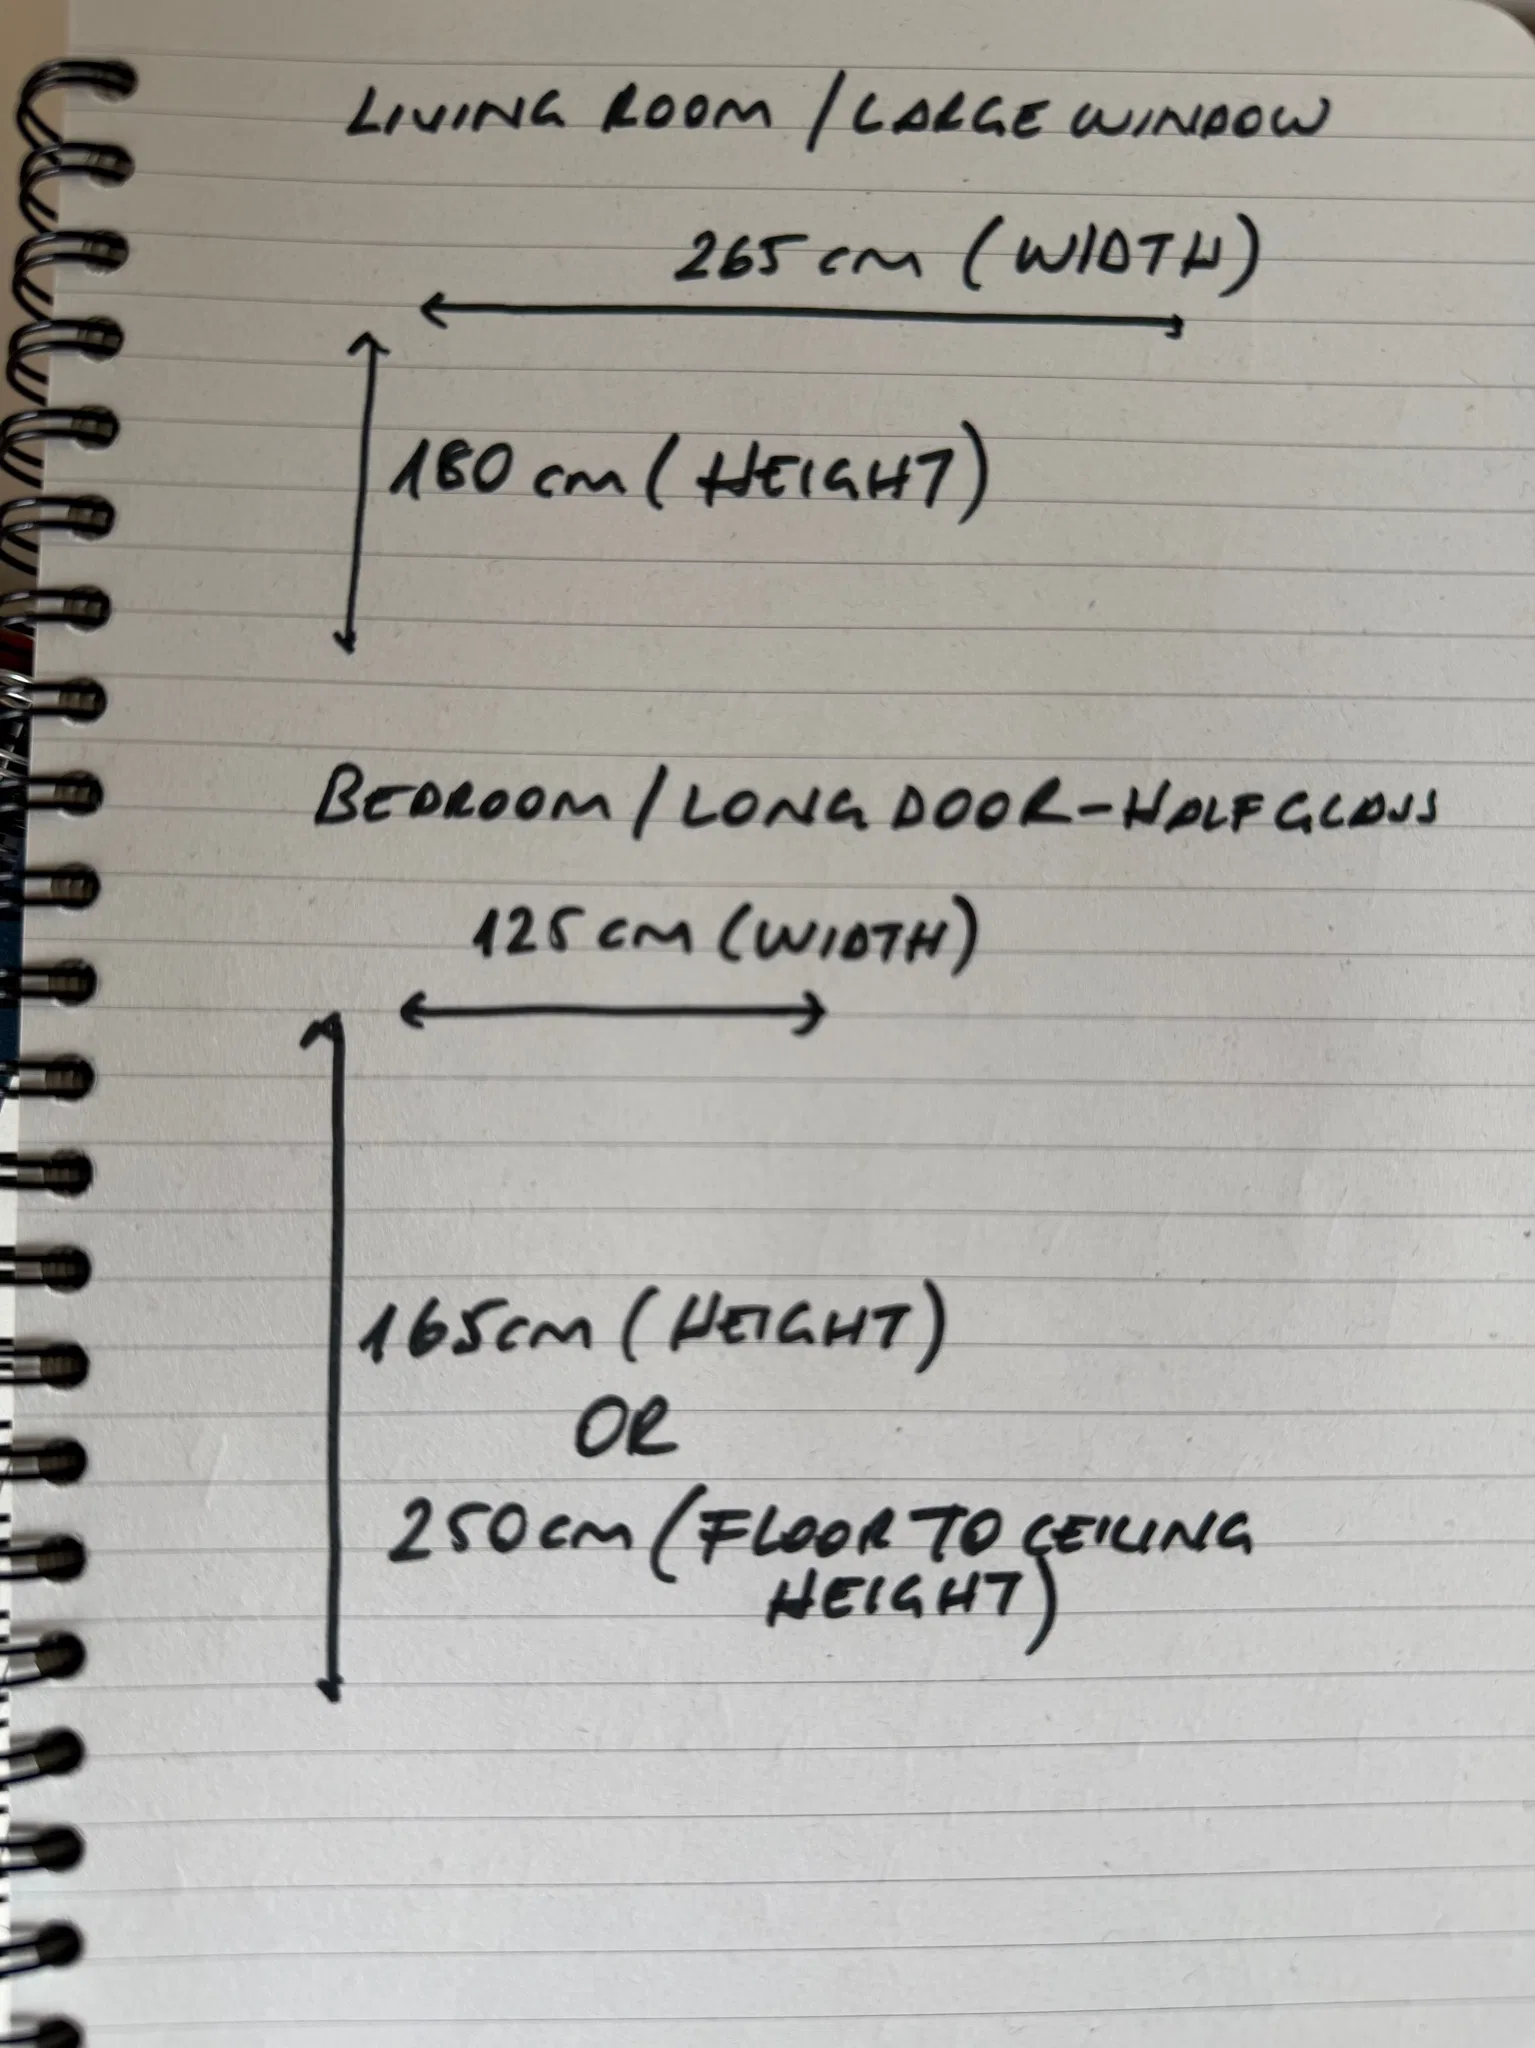 LIVING ROOM / LARGE WINDOW
265 cm (WIDTH)
180 cm (HEIGHT)
BEDROOM / LONG DOOR - HALF GLASS
125 cm (WIDTH)
165cm (HEIGHT)
OR
250cm (FLOOR TO CEILING
HEIGHT)